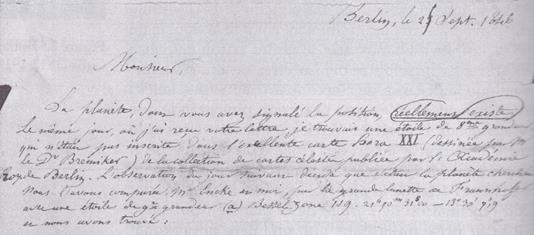 Berlin, le 25 Sept. 1846
Monsieur,
La planète, dont vous avez signalé la position, réellement existe.
Le même jour, où j'ai reçu votre lettre, je trouvais une étoile de 8me grandeur
qui n'était pas inscrite dans l'excellente carte Hora XXI (dessinée par Mr
le Dr Bremiker) de la collection de cartes célestes publiée par l'Académie
royale de Berlin. L'observation du jour suivant décida que c'était la planète cherchée
Nous l'avons comparé, Mr Encke et moi, par la grande lunette de Fraunhofer
avec une étoile de 9me grandeur (a) Bessel Zone 119. 21h 50m 31s
et nous avons trouvé: